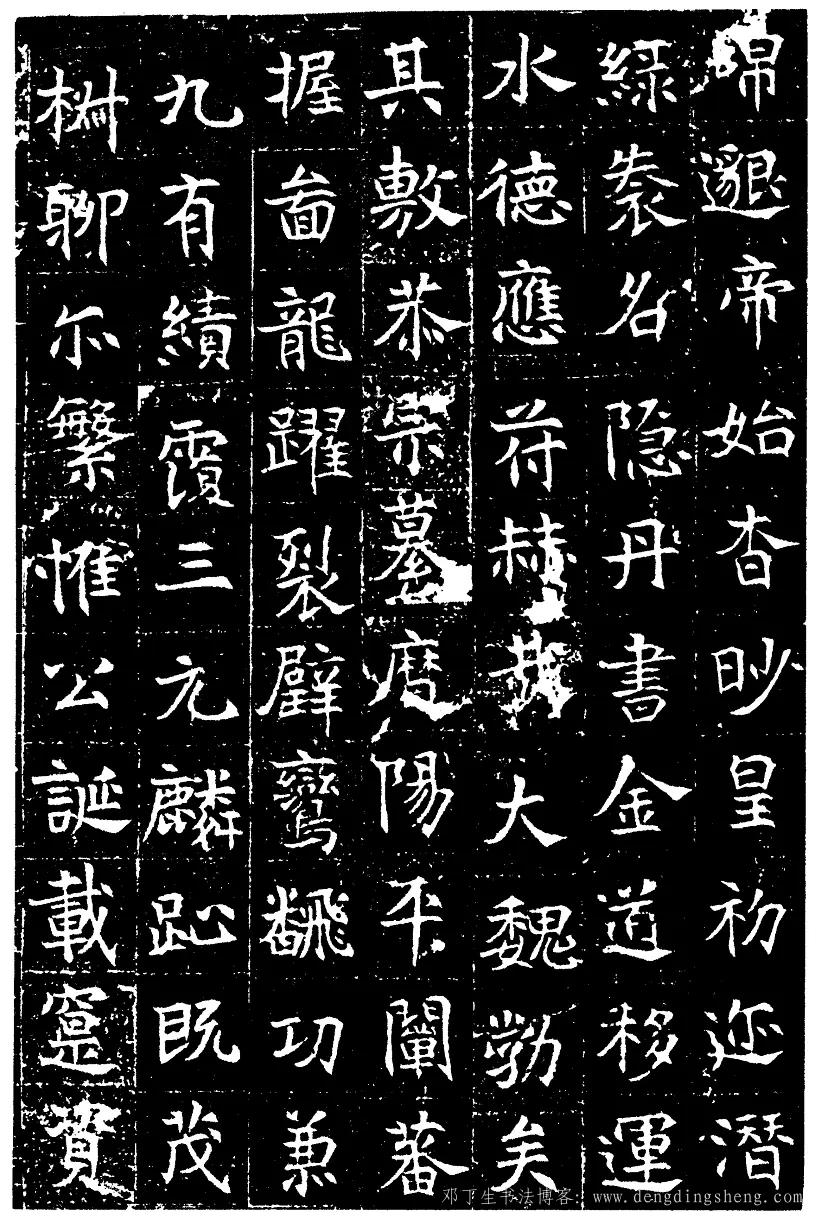 綿邈帝始杳眇皇初迹潛
綠袠名隱丹書金道移運
水德應符赫哉大魏勃矣
其敷恭宗纂曆陽平闡蕃
握啚龍躍裂壁鸞飜功兼
九有績霣三元麟趾既茂
椒聊尒繁惟公誕載寔資
邓丁生书法博客:www.dengdingsheng.com